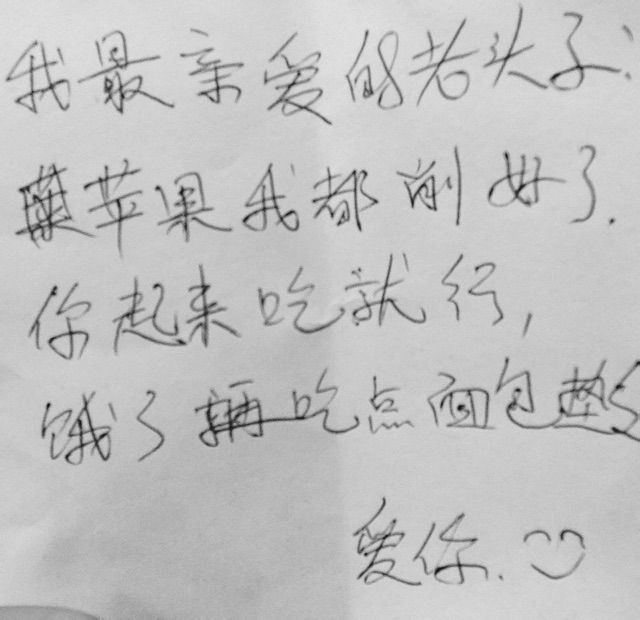 我最亲爱的老头子：
苹果我都削好了.
你起来吃就行,
饿了吃点面包垫
爱你.